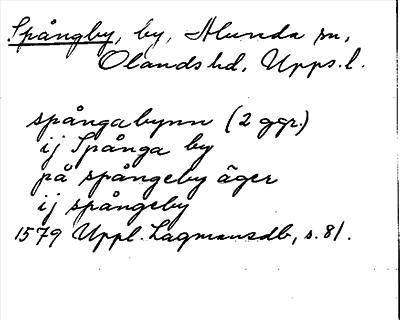 Spångby, by, Alunda sn,
Olands hd, Upps. l.
spångabynn (2 ggr.)
ij Spånga by
på spångeby äger
ij spångeby
1579 Uppl. Lagmansdb, s. 81.